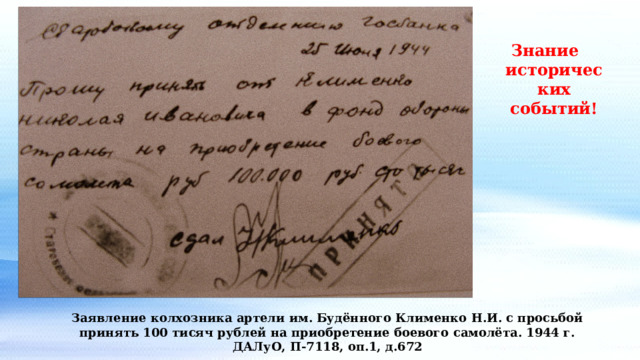 Старобовскому отделению Госбанка
25 Июля 1944
Прошу принять от Клименко
николая ивановича в фонд обороны
страны на приобретение боевого
самолета руб 100.000 руб. сто тысяч
сдал Клименко
ПРИНЯТО
Знание
историчес
ких
событий!
Заявление колхозника артели им. Будённого Клименко Н.И. с просьбой
принять 100 тисяч рублей на приобретение боевого самолёта. 1944 г.
ДАЛуО, П-7118, оп.1, д.672